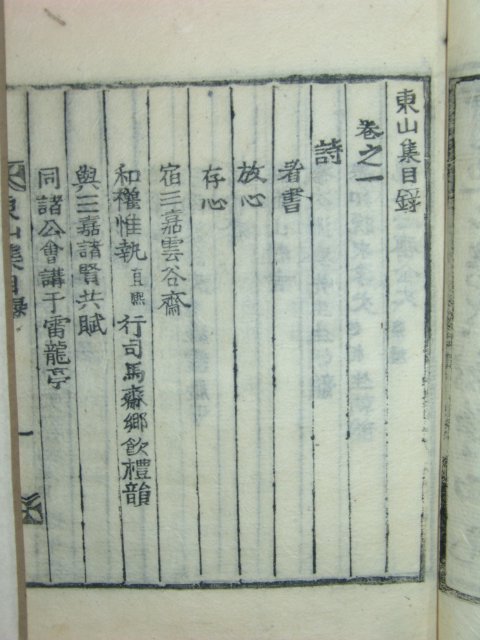 東山集目録
卷之一
詩
看書
放心
存心
宿三嘉雲谷齋
和權惟執直熙行司馬齋鄉飮禮韻
與三嘉諸賢共賦
同諸公會講于雷龍亭
東山集目錄
一